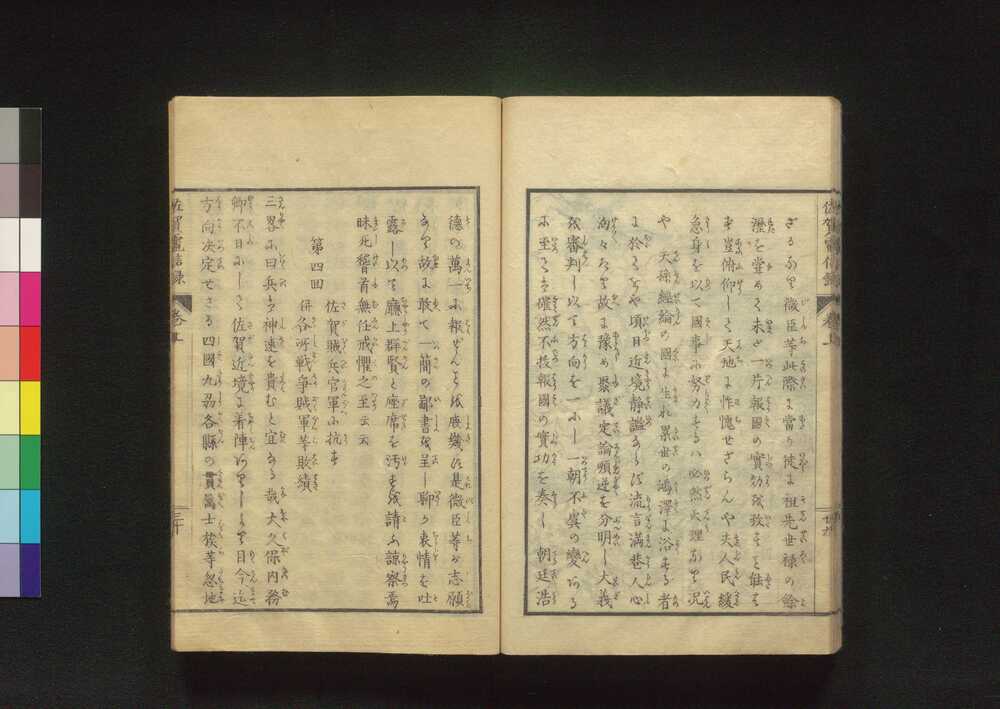 佐賀電信録
巻上
ざるなり微臣等此際に當り徒に祖先世禄の餘
瀝を甞めて未だ一片報國の實効を致すこと能はず
豈俯仰して天地に怍愧せざらんや夫人民緩
急身を以て國事に努力するハ必然大理なり况
や 天孫經綸の國に生れ累世の鴻澤に浴する者
に於るをや頃日近境静謐ならず流言満巷人心
洶々たり故に豫め衆議定論順逆を分明し大義
を審判し以て方向を一にし一朝不虞の變ある
に至る確然不抜報國の實功を奏し 朝廷浩
德の萬一に報ぜんことを庶幾ふ是微臣等が志願
なり故に敢て一簡の鄙書を呈し聊か衷情を吐
露し以て廳上群賢と座席を汚すを請ふ諒察焉
昧死稽首無任戒懼之至云云
第四回
佐賀賊兵官軍に抗す
併各所戦争賊軍等敗績
三畧に曰兵は神速を貴むと宜なる哉大久保内務
卿不日にして佐賀近境に着陣ありしより目今迄
方向决定せざる四國九州各縣の貫属士族等忽地
佐賀電信録
巻上
三十